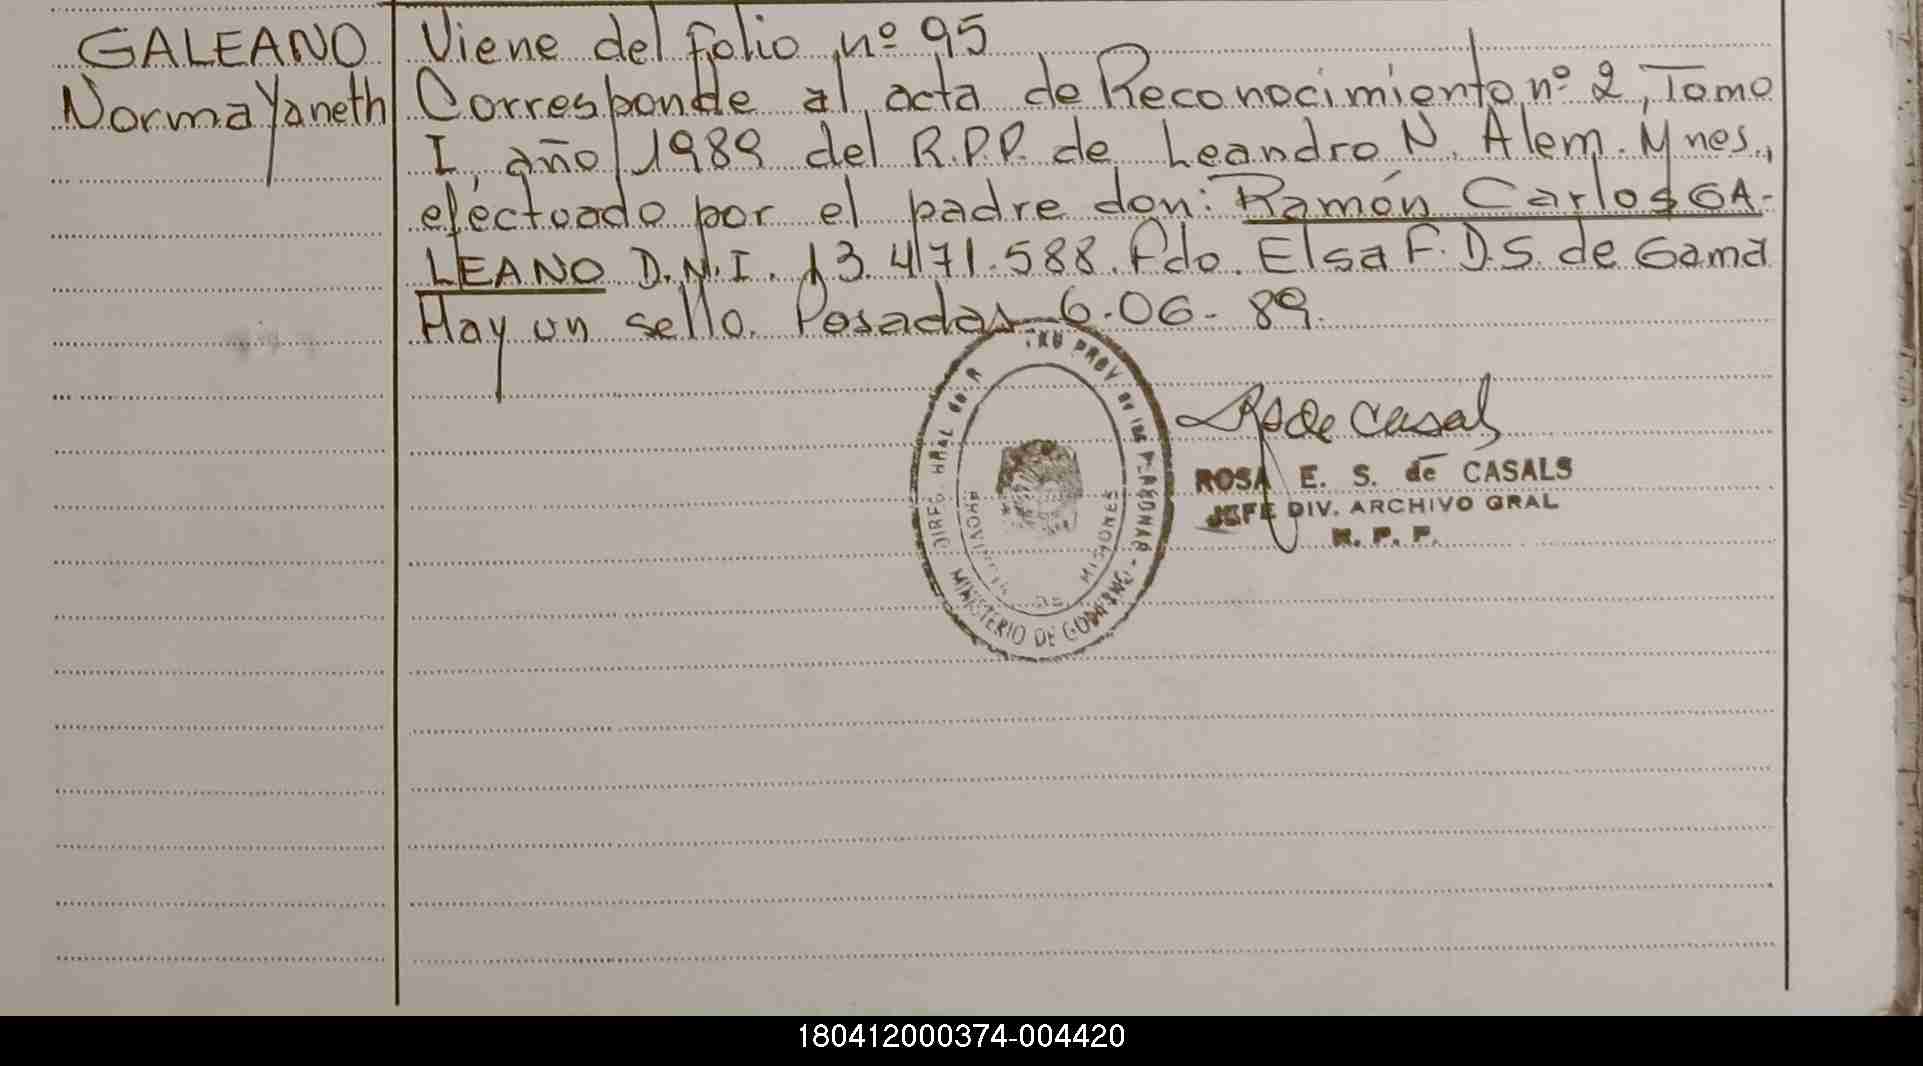 GALEANO
Norma Yaneth
Viene del folio nº 95
Corresponde al acta de Reconocimiento nº 2, Tomo
I, año 1989 del R.P.P. de Leandro N. Alem. Mnes.,
efectuado por el padre don: Ramón Carlos GA-
LEANO D.N.I. 13.471.588. Fdo. Elsa F. D.S. de Gama
Hay un sello. Posadas 6.06-89.
MINISTERIO DE
MISIONES
de Casals
ROSA E. S. de CASALS
JEFE DIV. ARCHIVO GRAL
R. P. P.
180412000374-004420